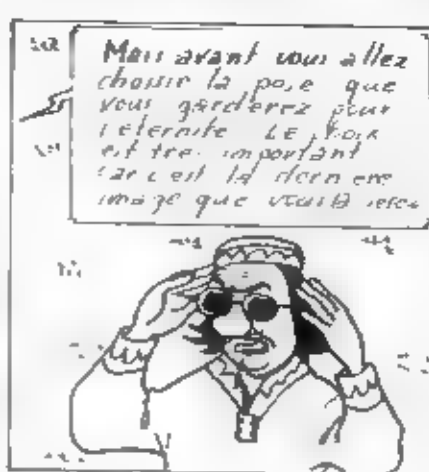 Mais avant vous allez
choisir la pose que
vous garderez pour
l'eternite LE choix
est tres important
car c'est la derniere
image que vous